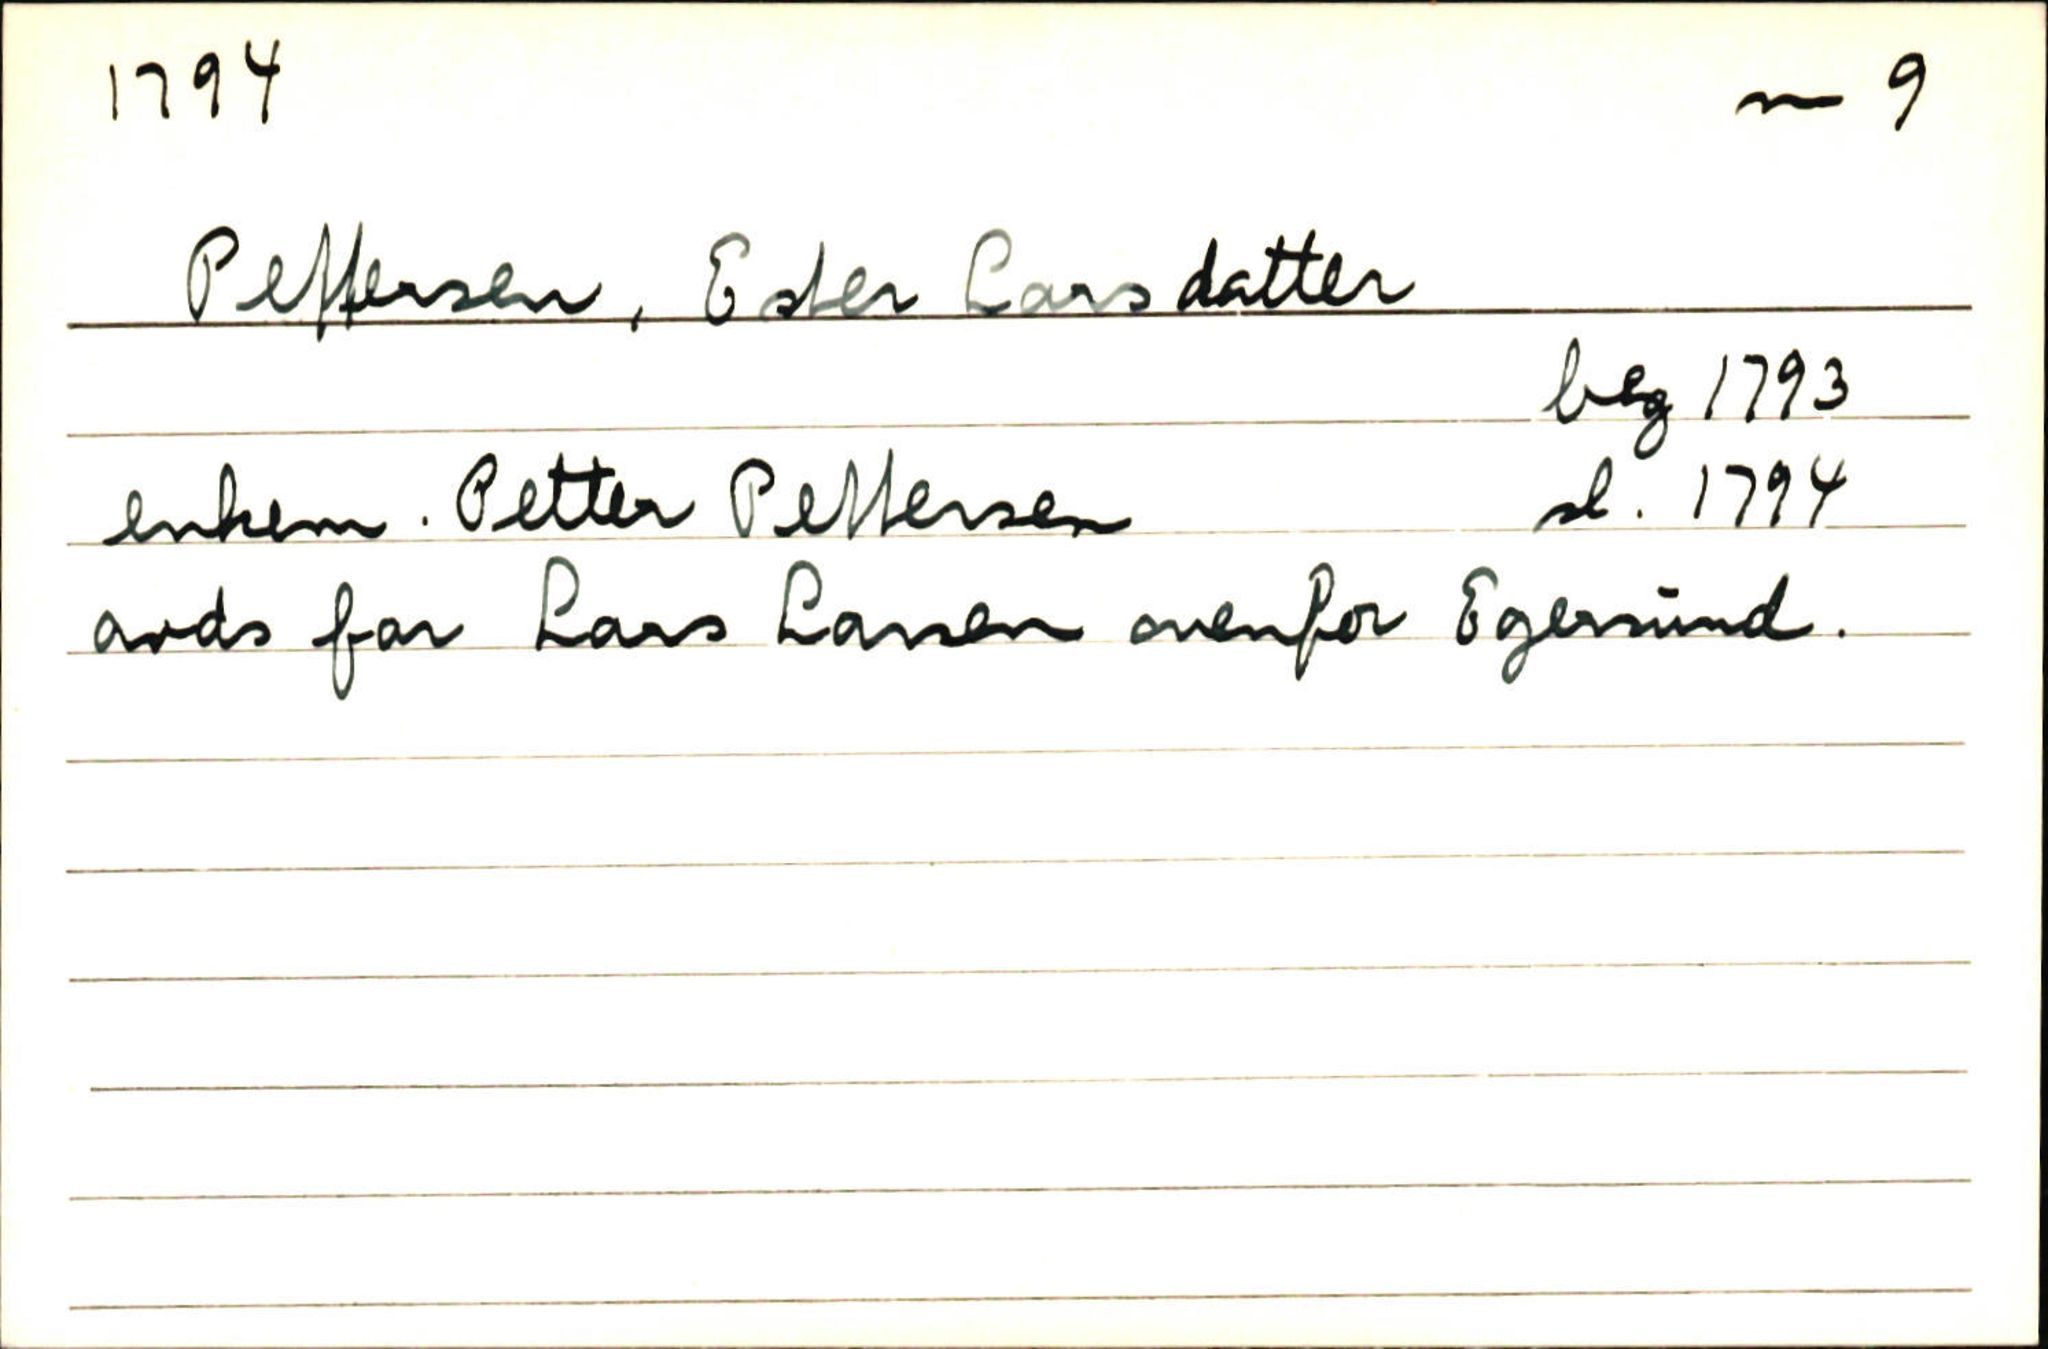 1794 m 9
Pettersen, Ester Larsdatter
beg 1793
enkem. Petter Pettersen sl. 1794
avds far Lars Larsen ovenfor Egersund.